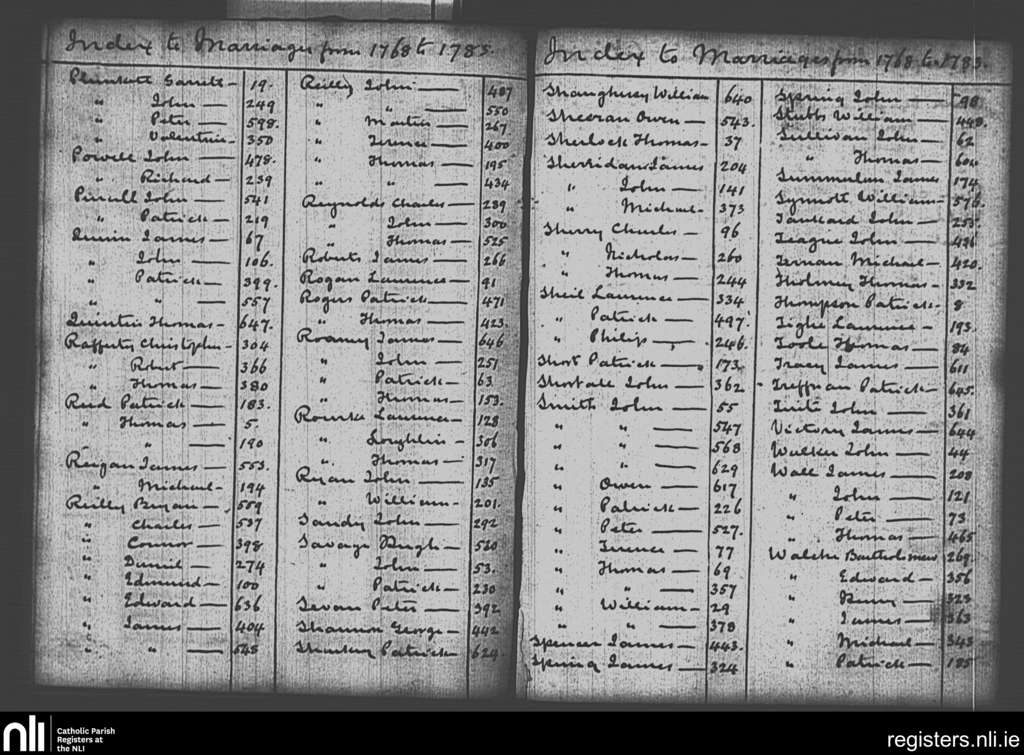 Index to Marriages from 1768 to 1785.
Plunkett Garrett — 19.
" John — 249
" Peter — 598.
" Valentine — 350
Powell John — 478.
" Richard — 239
Purcell John — 541
" Patrick — 219
Quinn James — 67
" John — 106.
" Patrick — 399.
" " — 557
Quintin Thomas — 647.
Rafferty Christopher — 304
" Robert — 366
" Thomas — 380
Reid Patrick — 183.
" Thomas — 5.
" " — 190
Reigan James — 553.
" Michael — 194
Reilly Bryan — 509
" Charles — 537
" Connor — 398
" Daniel — 274
" Edmund — 100
" Edward — 636
" James — 404
" " — 548
Reilly John — 487
" " — 550
" Martin — 267
" Terence — 400
" Thomas — 195
" " — 434
Reynolds Charles — 289
" John — 300
" Thomas — 525
Roberts James — 266
Rogan Laurence — 91
Rogers Patrick — 471
" Thomas — 423.
Rooney James — 646
" John — 251
" Patrick — 63
" Thomas — 153.
Rourke Laurence — 128
" Loughlin — 306
" Thomas — 317
Ryan John — 135
" William — 201.
Sandy John — 292
Savage Hugh — 520
" John — 53.
" Patrick — 230
Peter — 392
Shannon George — 442
Patrick — 624
Index to Marriages from 1768 to 1783.
Shaughnsy William 640
Sheeran Owen — 543.
Sherlock Thomas — 37
Sherridan James 204
" John — 141
" Michael — 373
Sherry Charles — 96
" Nicholas — 260
" Thomas — 244
Sheil Laurence — 334
" Patrick — 497.
" Philip — 246.
Short Patrick — 173.
Shortall John — 362
Smith John — 55
" " — 547
" " — 568
" " — 629
" Owen — 617
" Patrick — 226
" Peter — 527.
" Terence — 77
" Thomas — 69
" " — 357
" William — 29
" " — 378
Spencer James — 443.
Spring James — 324
Spring John — 98
Stubbs William — 448.
Sullivan John — 62
" Thomas — 604
James 174
Synnott William — 576.
Tankard John — 255.
Teague John — 496
Ternan Michael — 420.
Tholmey Thomas — 332
Thompson Patrick — 8.
Tighe Laurence — 193.
Toole Thomas — 84
Tracy James — 611
Patrick — 605.
Tuite John — 361
Victory James — 644
Walker John — 44
Wall James — 208
" John — 121
" Peter — 73
" Thomas — 465
Walsh Bartholomew 269.
" Edward — 356
" Henry — 323
" James — 363
" Michael — 343
" Patrick — 185
nli
Catholic Parish
Registers at
the NLI
registers.nli.ie